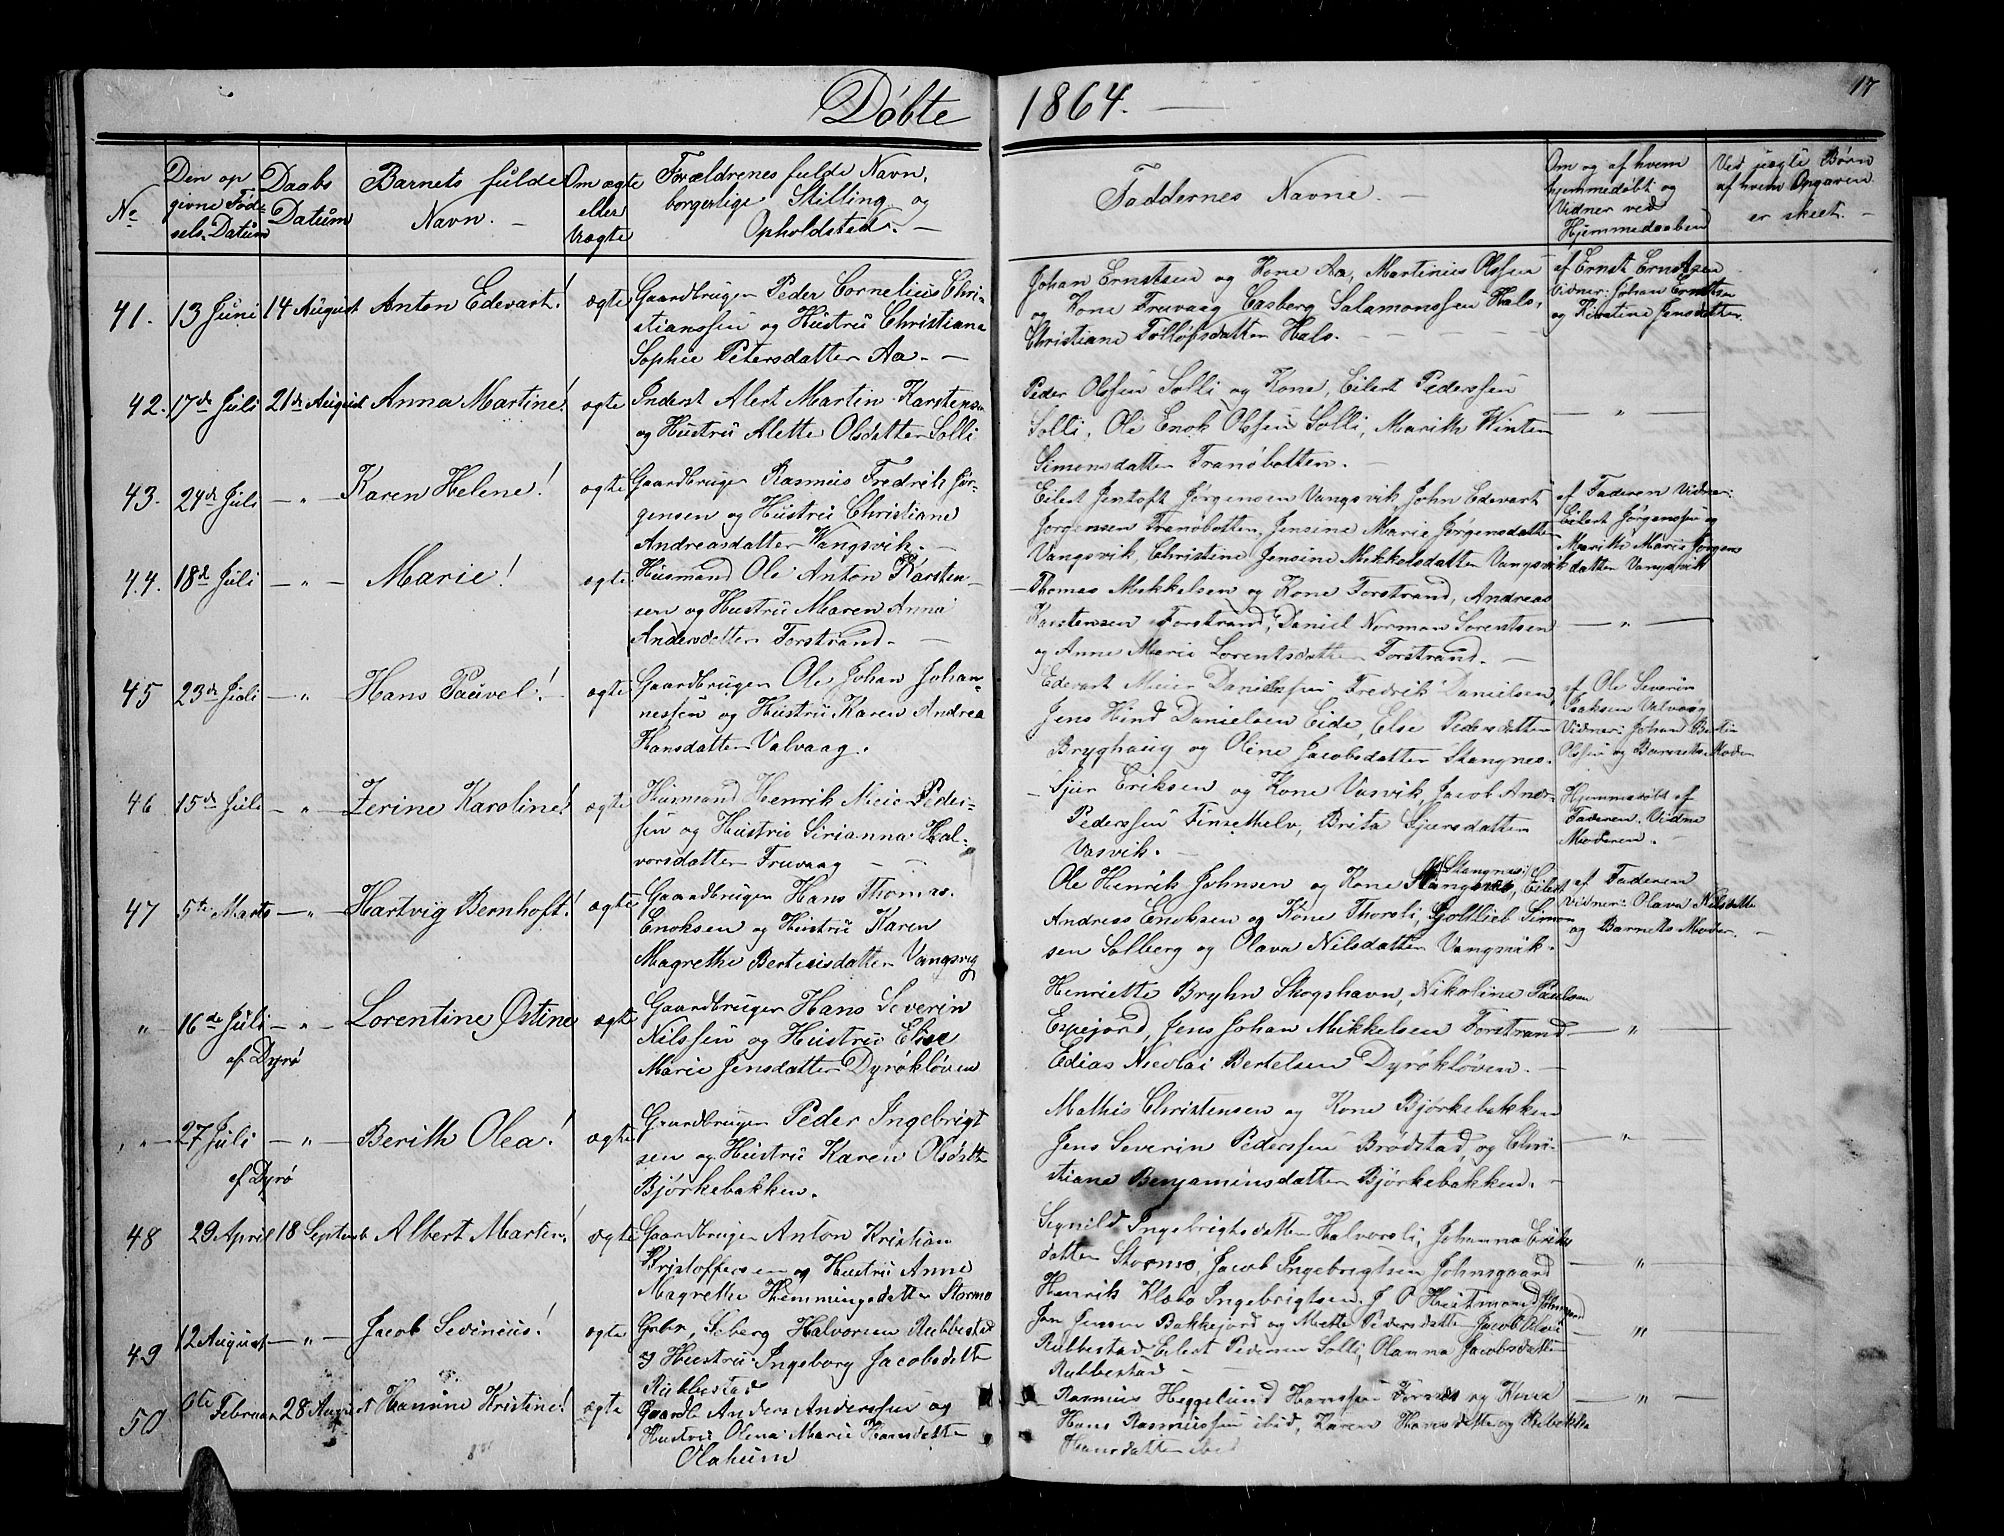 Döbte 1864.
17
No
Den op
givne Föd-
sels. Datum
Daabs
Datum
Barnets fulde
Navn.
Om ægte
eller
Uægte
Forældrenes fulde Navn,
borgerlige Stilling og
Opholdsted.
Faddernes Navne.
Om og af hvem
hjemmedøbt og
Vidner ved
Hjemmedaaben
Ved uægte Børn
af hvem Opgaven
er skeet.
41. 13 Juni 14 August Anton Edevart! ægte
Gaardbruger Peder Cornelius Chri-
stianssen og Hustru Christiana
Sophie Petersdatter Aa.
Johan Ernstsen og Kone Aa, Martinus Olssen
og Kone Fruvaag Casberg Salamonssen Hals,
Christiane Tølløfsdatter Hals.
af Ernst Ernstsen
Vidner: Johan Ernstsen
og Kirstine Jensdatter.
42. 17de Juli 21de August Anna Martine! ægte
Inderst Alert Martin Karstensen
og Hustru Alette Olsdatter Solli
Peder Olssen Solli og Kone, Eilert Pederssen
Solli, Ole Enok Olssen Solli, Marith Winter
Simonsdatter Tranøbotten.
— " —
43. 24de Juli — " — Karen Helene! ægte
Gaardbruger Rasmus Fredrik Jør-
gensen og Hustru Christiane
Andreasdatter Vangsvik.
Eilert Jentoft Jørgensen Vangsvik, John Edevart
Jørgensen Tranøbotten, Jensine Marie Jørgensdatter
Vangsvik, Christine Jensine Mikkelsdatter Vangsvik
af Faderen Vidner:
Eilert Jørgenssen og
Marith Marie Jørgens
datter Vangsvik
44. 18de Juli — " — Marie! ægte
Husmand Ole Anton Karsten-
sen og Hustru Maren Anna
Andersdatter Forstrand.
Thomas Mikkelsen og Kone Forstrand, Andreas
Karstensen Forstrand, Daniel Norman Lorentsen
og Anne Marie Lorentsdatter Forstrand.
— " —
45 23de Juli — " Hans Pauvel! ægte
Gaardbruger Ole Johan Johan-
nessen og Hustru Karen Andrea
Hansdatter Valvaag.
Edevart Meier Danielssen Fredrik Danielsen,
Jens Hind Danielsen Eide, Else Pedersdatter
Bryghaug og Oline Jacobsdatter Stangnes.
af Ole Severin
Isaksen Valvaag
Vidner: Johan Bertin
Olssen og Barnets Moder
46 15de Juli — " — Zerine Karoline! ægte
Husmand Henrik Meier Peder-
sen og Hustru Sirianna Hal-
vorsdatter Fruvaag
Sjur Eriksen og Kone Vasvik, Jacob Andr.
Pederssen Finsethelv, Brita Sjursdatter
Vasvik.
Hjemmedøbt af
Faderen. Vidne
Moderen.
47 5te Marts — " — Hartvig Bernhoft! ægte
Gaardbruger Hans Thomas.
Enoksen og Hustru Karen
Magrethe Berteusdatter Vangsvig
Ole Henrik Johnsen og Kone Stangnes, Eilert
Andreas Enoksen og Kone Thorsli, Gottlieb Simon
sen Solberg og Olava Nilsdatter Vangsvik.
af Faderen
Vidner: Olava Nilsdatter
og Barnets Moder.
" 16de Juli — " — Lorentine Østine ægte
af Dyrø
Gaardbruger Hans Severin
Nilssen og Hustru Elise
Marie Jensdatter Dyrøkløven
Henriette Bryhn Skogshavn, Nikoline Paulsen
Espejord, Jens Johan Mikkelsen Forstrand
Edias Nicolai Bertelsen Dyrøkløven.
— " —
" 27 Juli — " — Berith Olea! ægte
af Dyrø
Gaardbruger Peder Ingebrigt
sen og Hustru Karen Olsdatter
Bjørkebakken.
Mathis Christensen og Kone Bjørkebakken
Jens Severin Pederssen Brødstad, og Chri-
stiane Benjaminsdatter Bjørkebakken.
— " —
48 29 April 18 Septemb Albert Martin! ægte
Gaardbruger Anton Kristian
Kristoffersen og Hustru Anne
Magrethe Hemmingsdatter Stormo
Segnild Ingebrigtsdatter Halvorsli, Johanna Eriks
datter Stormo, Jacob Ingebrigtsen Johnsgaard
Henrik Klæbo Ingebrigtsen, J. O. Heitmand
— " —
49 12 August — " — Jacob Sevineus! ægte
Grbr. Seberg Halvorsen Rubbestad
og Hustru Ingeborg Jacobsdatter
Rubbestad
Jon Jensen Bakkejord og Mette Pedersdatter Jacob Olsen
Rubbestad, Eilert Pedersen Solli, Olamna Jacobsdatter
Rubbestad
— " —
50 6te Februar 28 August Hansine Kristine! ægte
Gaardb. Anders Anderssen og
Hustru Olena Marie Hansdatter
Olaheim
Rasmus Heggelund Hanssen Forsnes og Kone
Hans Rasmussen ibid, Karen Hansdatter og
Hansdatter ibid
— " —